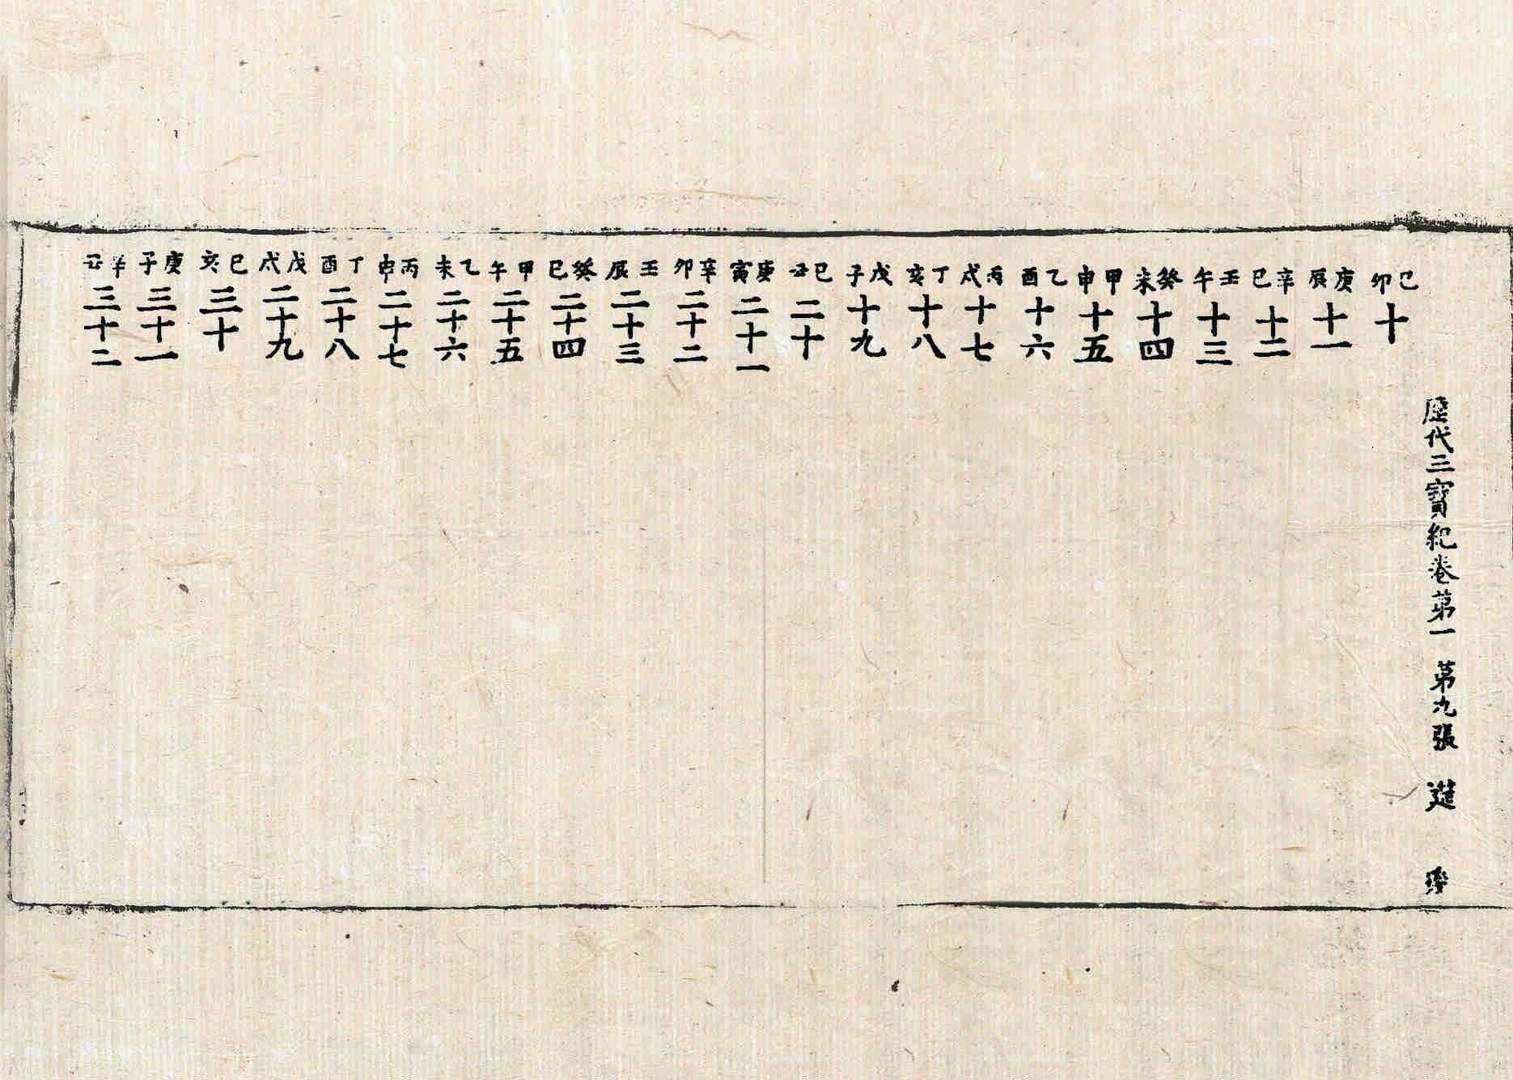 歷代三寶紀卷第一 第九張
己卯 十
庚辰 十一
辛巳 十二
壬午 十三
癸未 十四
甲申 十五
乙酉 十六
丙戌 十七
丁亥 十八
戊子 十九
己丑 二十
庚寅 二十一
辛卯 二十二
壬辰 二十三
癸巳 二十四
甲午 二十五
乙未 二十六
丙申 二十七
丁酉 二十八
戊戌 二十九
己亥 三十
庚子 三十一
辛丑 三十二